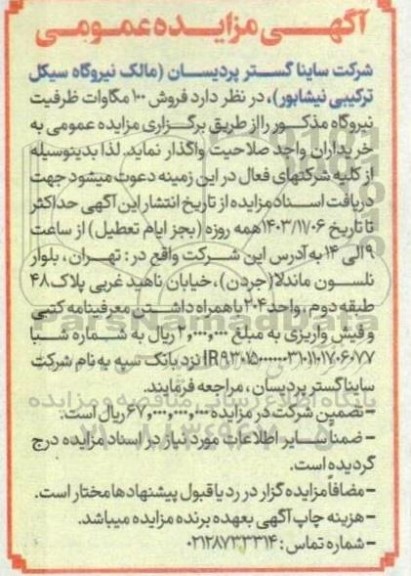 آگهـی مزایده عمومـی
شرکت ساینا گستر پردیسان (مالک نیروگاه سیکل
ترکیبی نیشابور)، در نظر دارد فروش ۱۰۰ مگاوات ظرفیت
نیروگاه مذکور را از طریق برگزاری مزایده عمومی به
خریداران واجد صلاحیت واگذار نماید. لذا بدینوسیله
از کلیه شرکتهای فعال در این زمینه دعوت میشود جهت
دریافت اسناد مزایده از تاریخ انتشار این آگهی حداکثر
تا تاریخ ۱۴۰۳/۱۱/۰۶ همه روزه (بجز ایام تعطیل) از ساعت
۹ الی ۱۴ به آدرس این شرکت واقع در: تهران، بلوار
نلسون ماندلا (جردن)، خیابان ناهید غربی پلاک ۴۸
طبقه دوم، واحد ۲۰۴ با همراه داشتن معرفینامه کتبی
و فیش واریزی به مبلغ ۲,۰۰۰,۰۰۰ ریال به شماره شبا
نزد بانک سپه به نام شرکت
ساینا گستر پردیسان، مراجعه فرمایند.
- تضمین شرکت در مزایده ۶۷,۰۰۰,۰۰۰,۰۰۰ ریال است.
- ضمناً سایر اطلاعات مورد نیاز در اسناد مزایده درج
گردیده است.
- مضافاً مزایده گزار در رد یا قبول پیشنهادها مختار است.
- هزینه چاپ آگهی بعهده برنده مزایده میباشد.
- شماره تماس: ۰۲۱۲۸۷۳۳۳۱۴
ParsNamadData
پایگاه اطلاع رسانی مناقصه و مزایده